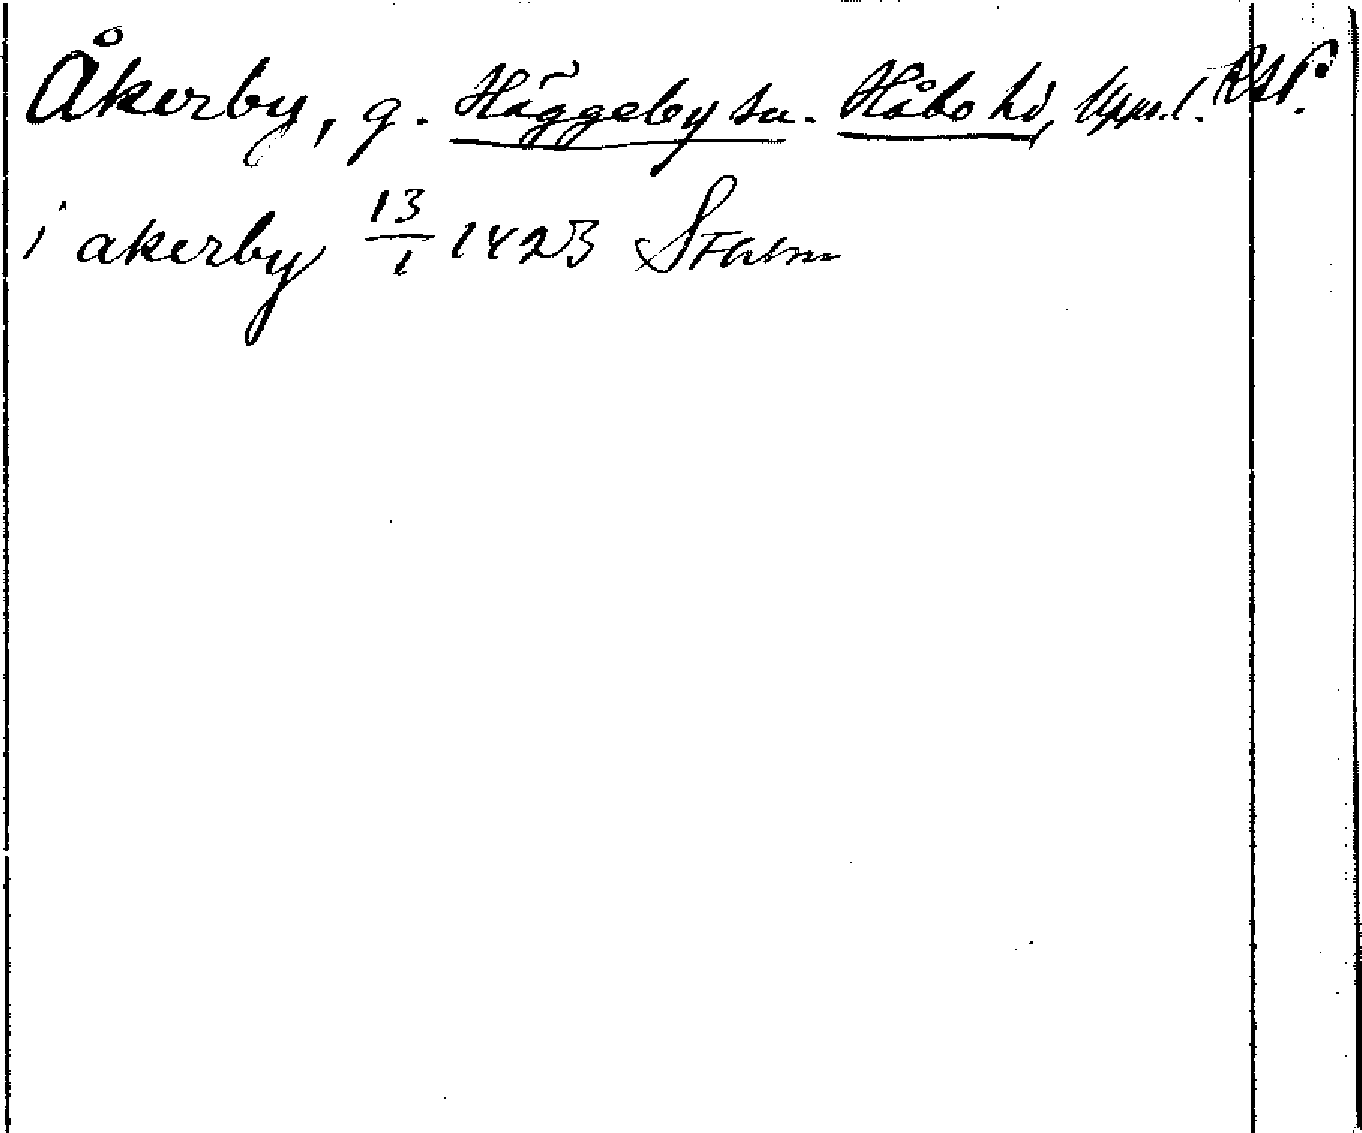 Åkerby, g. Häggeby sn. Håbo hd, Upps. l. RAP.
i akerby 13/1 1423 Sthlm